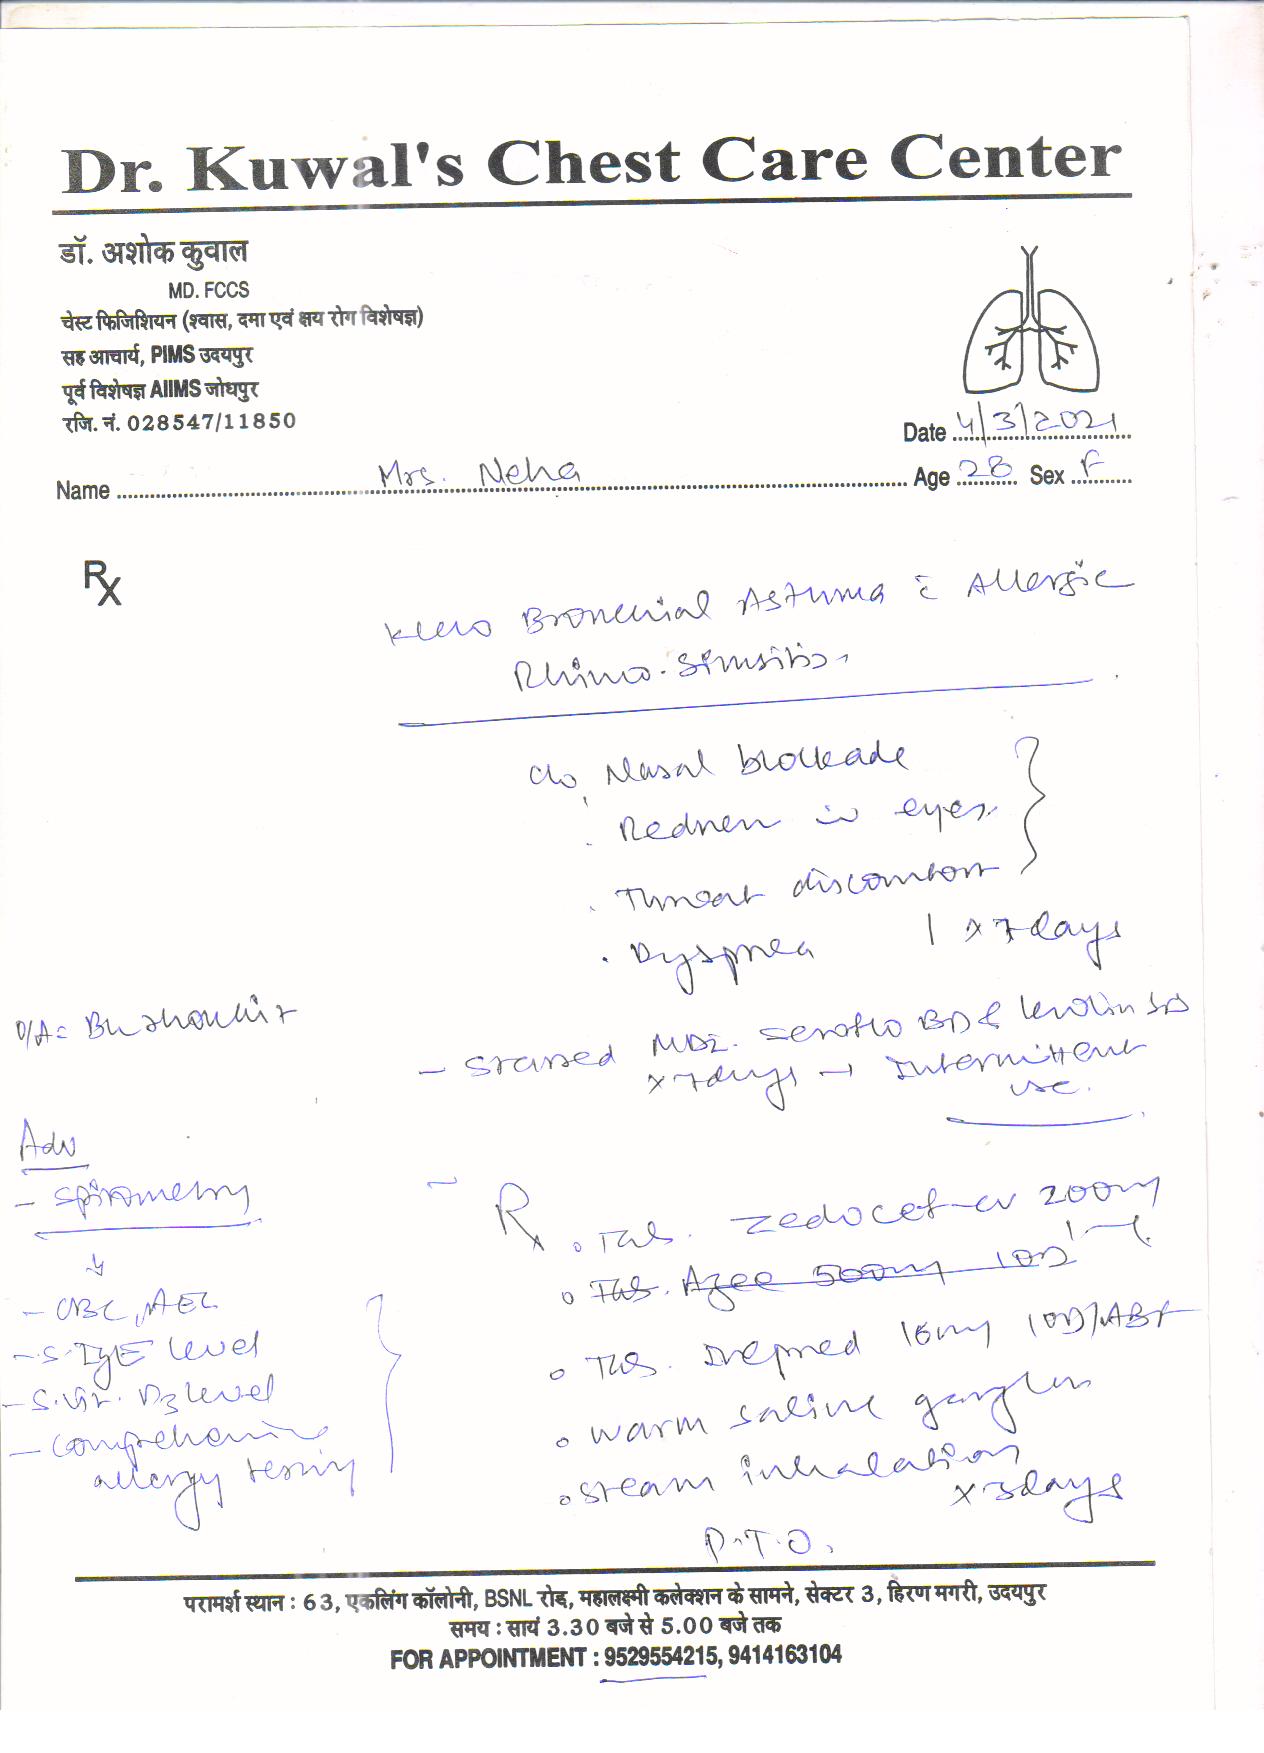 Dr. Kuwal's Chest Care Center
डॉ. अशोक कुवाल
MD. FCCS
चेस्ट फिजिशियन (श्वास, दमा एवं क्षय रोग विशेषज्ञ)
सह आचार्य, PIMS उदयपुर
पूर्व विशेषज्ञ AIIMS जोधपुर
रजि. नं. 028547/11850
Date 4/3/2021
Name Mrs. Neha Age 28 Sex F
Rx
Bronchial Asthma c̄ Allergic
Rhino-Sinusitis.
c/o Nasal blockade
Redness in eyes
Throat discomfort
Dyspnea | x 7 days
O/A=
- Started MDI. Seroflo BD &
x 7 days → Intermittent
use.
Adv
- Spirometry
- CBC, AEC
- S. IgE level
- S. Vit. D3 level
- Comprehensive
allergy testing
Rx
Tab. Zedocef-CV 200mg
1-1
Tab. Azee 500mg 1OD
Tab. 16mg 1OD/ABF
Warm saline gargles
Steam inhalation
x 3days
P.T.O.
परामर्श स्थान : 63, एकलिंग कॉलोनी, BSNL रोड, महालक्ष्मी कलेक्शन के सामने, सेक्टर 3, हिरण मगरी, उदयपुर
समय : सायं 3.30 बजे से 5.00 बजे तक
FOR APPOINTMENT : 9529554215, 9414163104